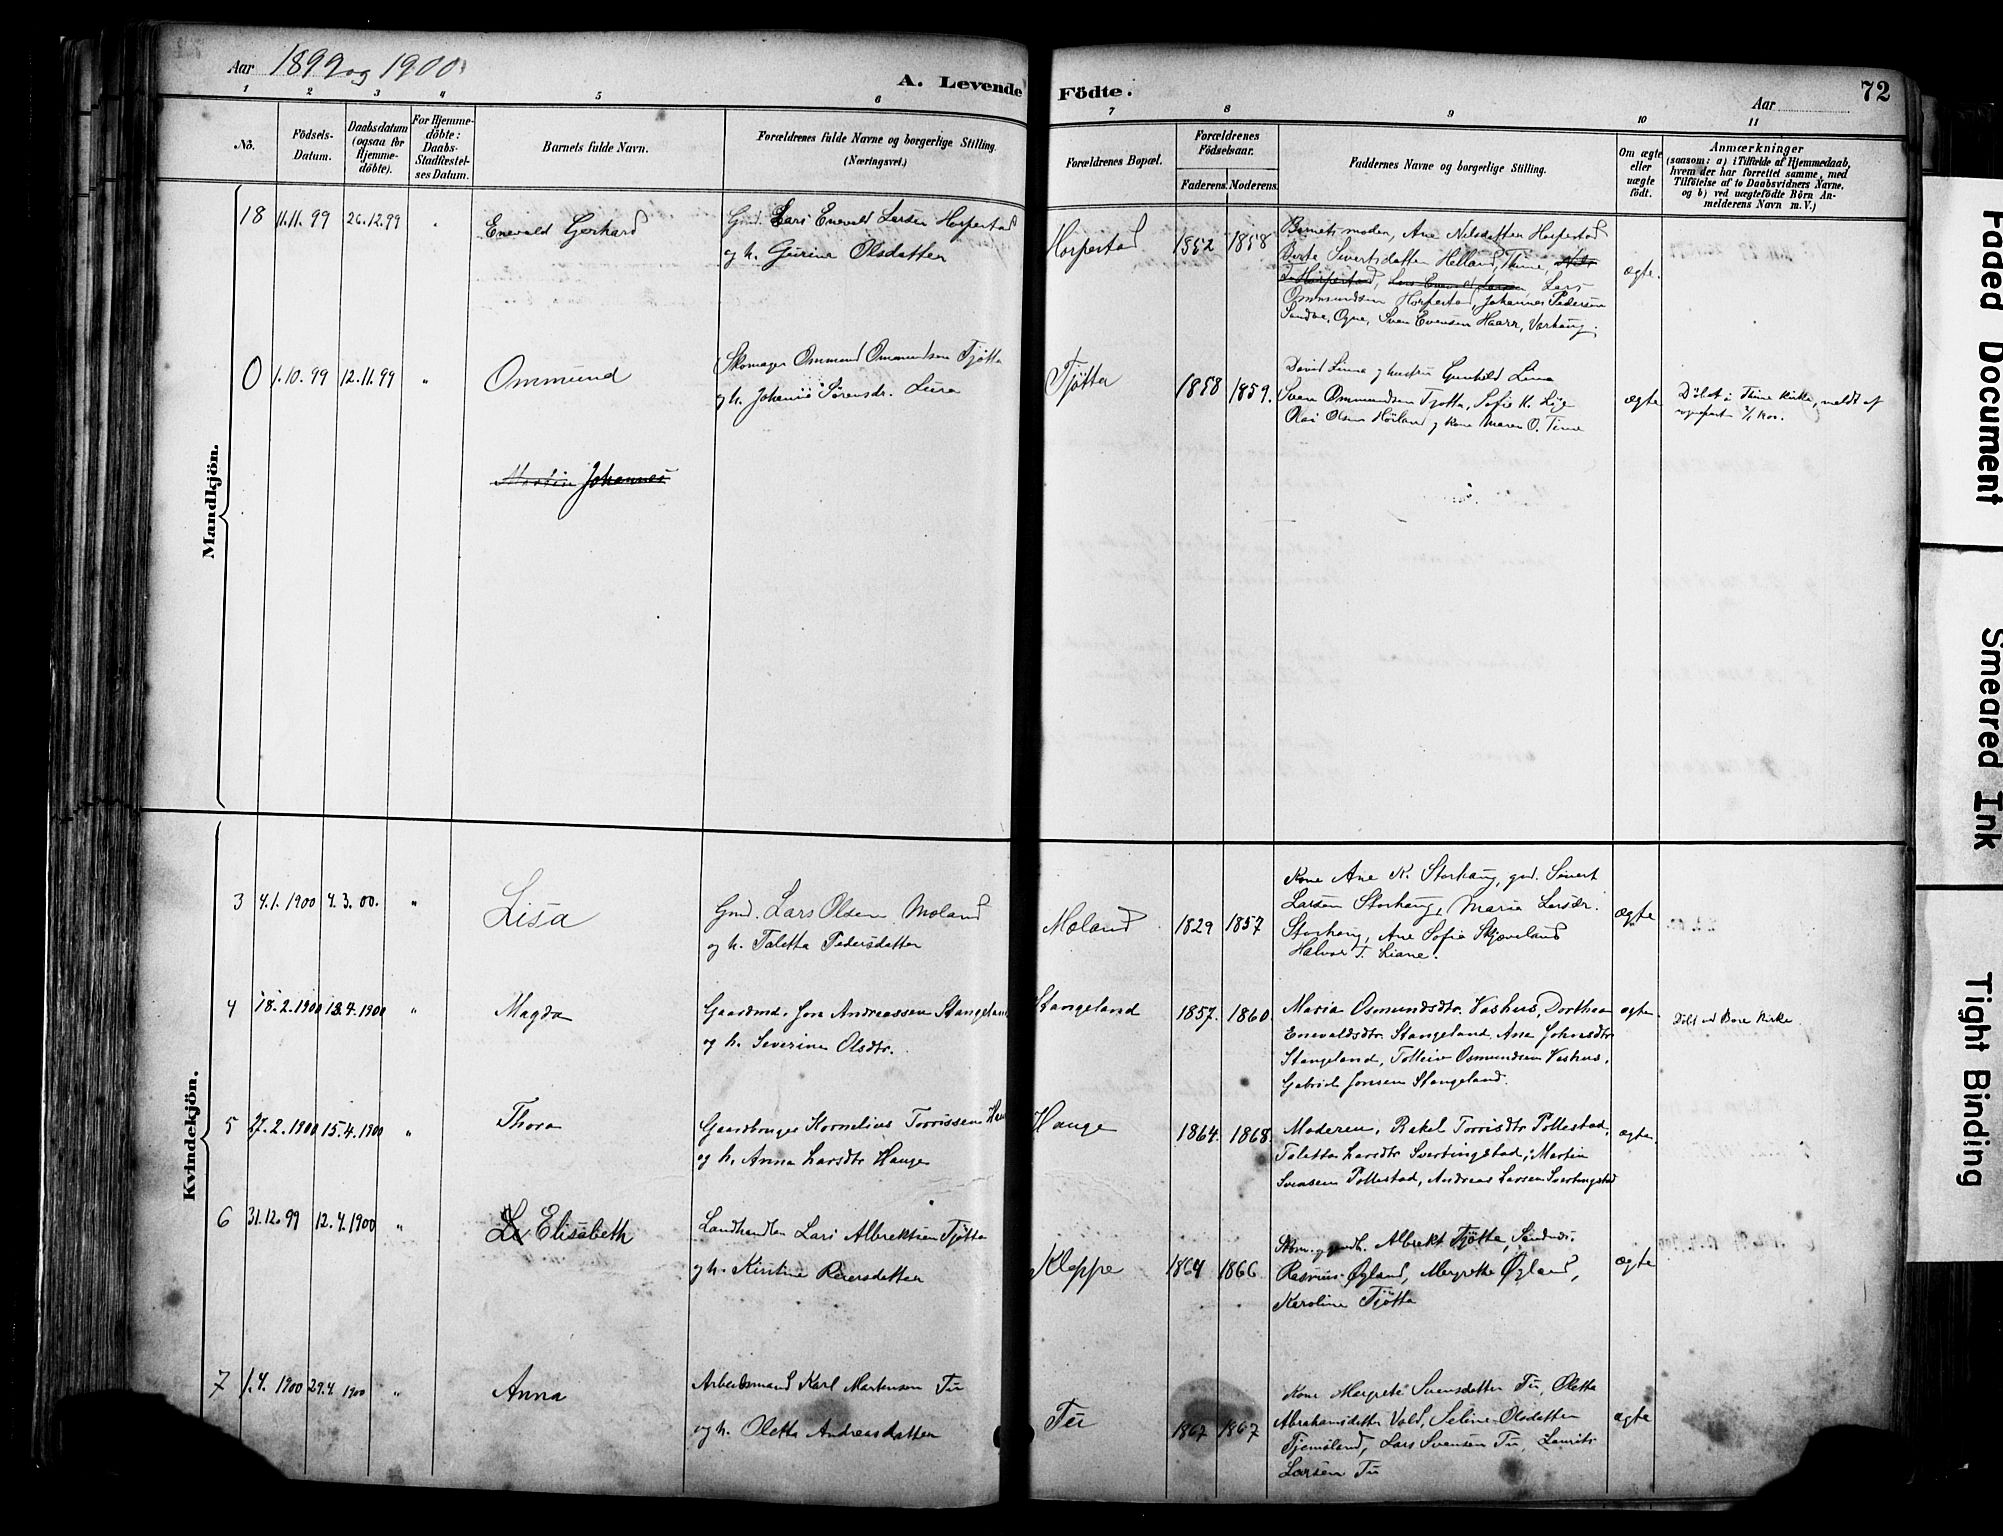 Aar 1899 og 1900.
A. Levende Födte.
Aar
72
1 2 3 4 5 6 7 8 9 10 11
No.
Födsels-Datum.
Daabsdatum (ogsaa for Hjemme-döbte).
For Hjemme-döbte: Daabs-Stadfæstel-ses Datum.
Barnets fulde Navn.
Forældrenes fulde Navne og borgerlige Stilling. (Næringsvei.)
Forældrenes Bopæl.
Forældrenes Födselsaar.
Faderens. Moderens.
Faddernes Navne og borgerlige Stilling.
Om ægte eller uægte födt.
Anmærkninger
(saasom: a) i Tilfælde af Hjemmedaab, hvem der har forrettet samme, med Tilföielse af to Daabsvidners Navne, og b) ved uægtefödte Börn An-melderens Navn m. V.)
Mandkjön.
18 11.11.99 26.12.99 "
Enevald Gerhard
Gmd. Lars Enevald Larsen Horpestad
og h. Gurine Olsdatter
Horpestad
1852 1858
Barnets moder, Ane Nilsdatter Horpestad
Berta Sivertsdatter Helland, Time,
Horpestad, Lars Enevald Larsen, Lars
Ommundsen Horpestad, Johannes Pedersen
Ogne, Sven Evensen Haarr, Varhaug.
ægte.
0 1.10.99 12.11.99 "
Ommund
Skomager Ommund Ommundsen Tjøtta
og h. Johanne Sørensdr. Lura
Tjøtta
1858 1859.
David Lima og hustru Gunhild Lima
Sven Ommundsen Tjøtta, Sofie K. Lye
Olai Olsen Hörland og kone Maren O. Time
ægte
Døbt i Time kirke, meldt af
Martin Johannes
Kvindekjön.
3 4.1.1900 4.3.00. "
Lisa
Gmd. Lars Olsen Moland
og h. Taletta Pedersdatter
Moland
1829 1857
Kone Ane N. Storhaug, gmd. Sivert
Larsen Storhaug, Maria Larsdr.
Storhaug, Ane Sofie Skjæveland
Halvor T. Liane.
ægte
4 18.2.1900 13.4.1900 "
Magda
Gaardmd. Jon Andreassen Stangeland
og h. Severine Olsdtr.
Stangeland
1857. 1860.
Maria Osmundsdtr. Vashus, Dorthea
Enevaldsdtr. Stangeland, Ane Johnsdtr
Stangeland, Tolleiv Osmundsen Vashus,
Gabriel Jonsen Stangeland.
ægte.
Døbt ved Bore Kirke.
5 27.2.1900 15.4.1900 "
Thora
Gaardbruger Kornelius Torrissen Hauge
og h. Anna Larsdtr Hauge
Hauge
1864. 1868.
Moderen, Rakel Torrisdtr Pollestad,
Taletta Larsdtr Svertingstad, Martin
Svensen Pollestad, Andreas Larsen Svertingstad
ægte.
6 31.12.99 12.4.1900 "
Elisabeth
Landhandler Lars Albrektsen Tjøtta
og h. Kirstine Reiersdatter
Kleppe
1864 1866
Albrekt Tjøtta, Sandnes.
Rasmus Øgland, Margrethe Øgland,
Karoline Tjøtta
ægte
7 1.4.1900 29.4.1900 "
Anna
Arbeidsmand Karl Martinsen Tu
og h. Oletta Andreasdatter
Tu
1867 1867
Kone Margrete Svensdatter Tu, Oletta
Abrahamsdatter Vold, Seline Olsdatter
Tjemsland, Lars Svensen Tu, Laurits
Larsen Tu
ægte
Faded Document
Smeared Ink
Tight Binding